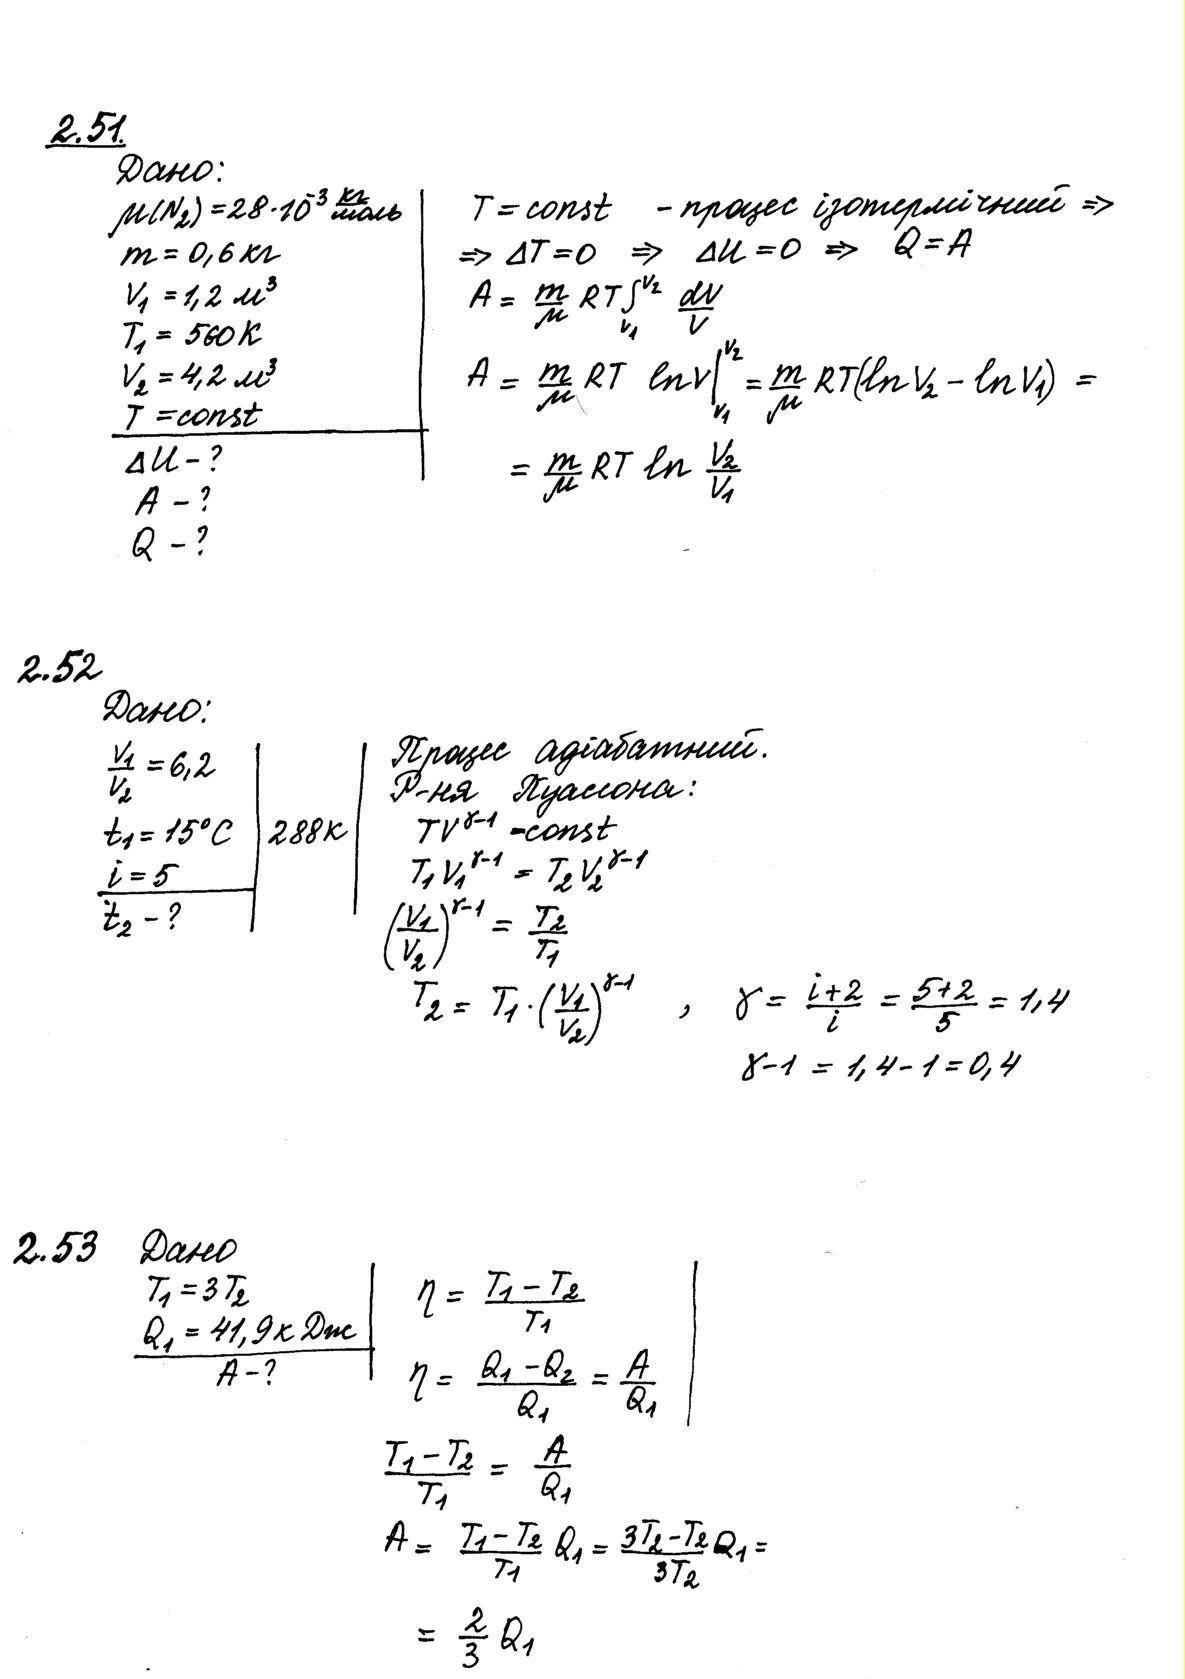 2.51.
Дано:
μ(N₂) = 28·10⁻³ кг/моль
m = 0,6 кг
V₁ = 1,2 м³
T₁ = 560 К
V₂ = 4,2 м³
T = const
ΔU - ?
A - ?
Q - ?
T = const - процес ізотермічний ⇒
⇒ ΔT = 0 ⇒ ΔU = 0 ⇒ Q = A
A = m/μ RT ∫_{V₁}^{V₂} dV/V
A = m/μ RT lnV |_{V₁}^{V₂} = m/μ RT(lnV₂ - lnV₁) =
= m/μ RT ln V₂/V₁
2.52
Дано:
V₁/V₂ = 6,2
t₁ = 15°C 288К
i = 5
t₂ - ?
Процес адіабатний.
Р-ня Пуассона:
TV^{γ-1} = const
T₁V₁^{γ-1} = T₂V₂^{γ-1}
(V₁/V₂)^{γ-1} = T₂/T₁
T₂ = T₁·(V₁/V₂)^{γ-1} , γ = (i+2)/i = (5+2)/5 = 1,4
γ-1 = 1,4 - 1 = 0,4
2.53 Дано
T₁ = 3T₂
Q₁ = 41,9 кДж
A - ?
η = (T₁ - T₂)/T₁
η = (Q₁ - Q₂)/Q₁ = A/Q₁
(T₁ - T₂)/T₁ = A/Q₁
A = (T₁ - T₂)/T₁ Q₁ = (3T₂ - T₂)/3T₂ Q₁ =
= 2/3 Q₁